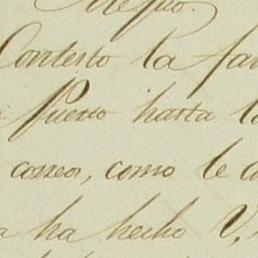 Contesto la fa
Puerto hasta l
correo, como le d
a ha hecho V,